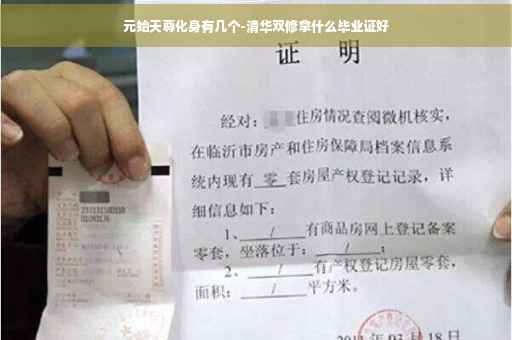 元始天尊化身有几个-清华双修拿什么毕业证好
证 明
经对： 住房情况查阅微机核实，
在临沂市房产和住房保障局档案信息系
统内现有 零 套房屋产权登记记录，详
细信息如下：
1、 / 有商品房网上登记备案
零套，坐落位于： / ；
2、 / 有产权登记房屋零套，
面积： / 平方米。
03月18日